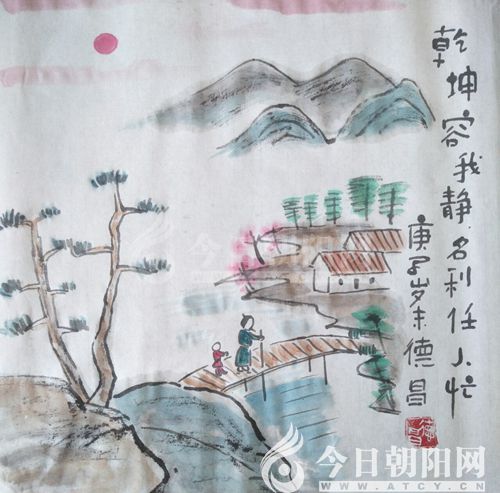 乾坤容我静.名利任人忙
庚子岁末德昌
德昌
今日朝阳网
今日朝阳网
WWW.ATCY.CN